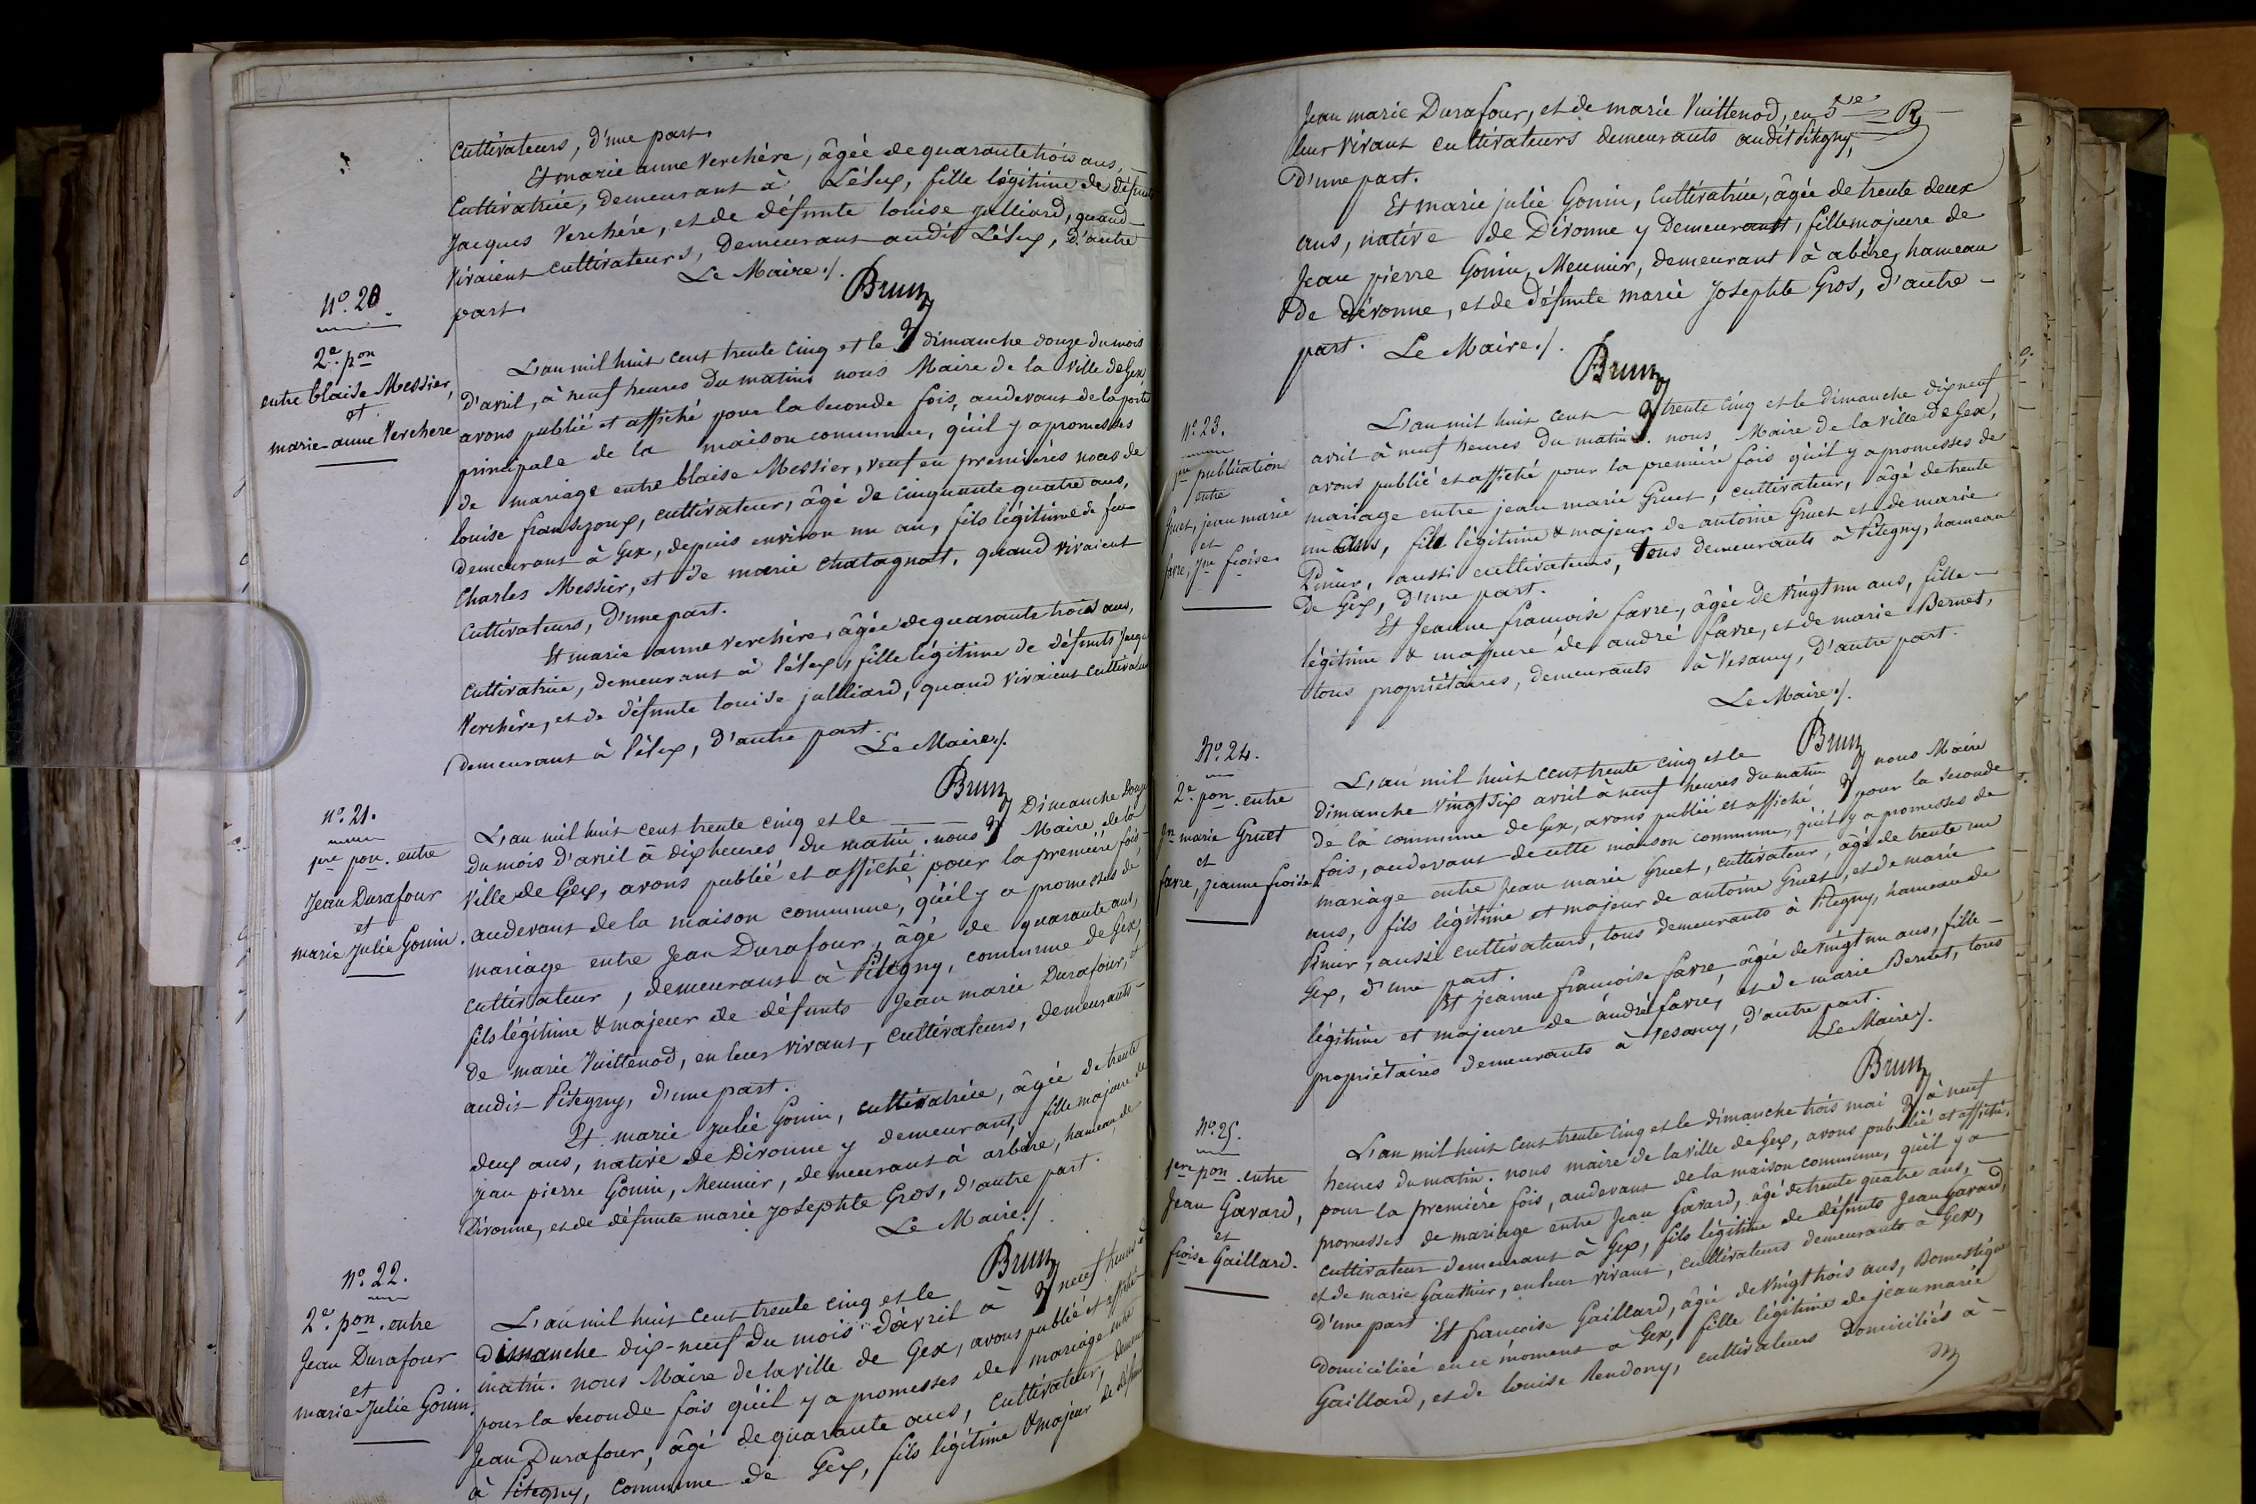 Cultivateurs, d'une part.
Et marie anne Verchère, âgée de quarante trois ans,
Cultivatrice, demeurant à Lélex, fille légitime de défunt
Jacques Verchère, et de défunte louise julliard, quand
vivaient cultivateurs, demeurant audit Lélex, d'autre
part.
Le Maire ./.
Brun
N.º 20.
2.e p.on
entre blaise Messier,
et
marie-anne Verchere
L'an mil huit cent trente cinq et le dimanche douze du mois
d'avril, à neuf heures du matin nous Maire de la ville de Gex,
avons publié et affiché pour la seconde fois, audevant de la porte
principale de la maison commune, qu'il y a promesses
de mariage entre blaise Messier, veuf en premières noces de
louise, cultivateur, âgé de cinquante quatre ans,
demeurant à Gex, depuis environ un an, fils légitime de feu
Charles Messier, et de marie Chatagnat, quand vivaient
Cultivateurs, d'une part.
Et marie anne Verchère, âgée de quarante trois ans,
Cultivatrice, demeurant à Lélex, fille légitime de défunts Jacques
Verchère, et de défunte louise julliard, quand vivaient cultivateurs
demeurant à Lélex, d'autre part.
Le Maire ./.
Brun
N.º 21.
1.re pon. entre
Jean Durafour
et
marie Julie Gonin.
L'an mil huit cent trente cinq et le Dimanche Douze
du mois d'avril à dix heures du matin. nous Maire de la
ville de Gex, avons publié et affiché pour la première fois
audevant de la maison commune, qu'il y a promesses de
mariage entre Jean Durafour, âgé de quarante ans,
cultivateur, demeurant à Pitegny, commune de Gex,
fils légitime & majeur de défunts Jean marie Durafour, et
de marie Vuittenod, en leur vivant, cultivateurs, demeurants
audit Pitegny, d'une part.
Et marie Julie Gonin, cultivatrice, âgée de trente
deux ans, native de Divonne y demeurant, fille majeure de
jean pierre Gonin, Meunier, demeurant à arbère, hameau de
Divonne, et de défunte marie Josephte Gros, d'autre part.
Le Maire ./.
Brun
N.º 22.
2.e pon. entre
Jean Durafour
et
marie-Julie Gonin.
L'an mil huit cent trente cinq et le
dimanche dix-neuf du mois d'avril à neuf heures du
matin. nous Maire de la ville de Gex, avons publié et affiché
pour la seconde fois qu'il y a promesses de mariage entre
Jean Durafour, âgé de quarante ans, cultivateur, demeurant
à Pitegny, commune de Gex, fils légitime & majeur de défunts
Jean marie Durafour, et de marie Vuittenod, en 5e
leur vivant cultivateurs demeurants audit Pitegny,
D'une part.
Et marie julie Gonin, Cultivatrice, âgée de trente deux
ans, native de Divonne y demeurant, fille majeure de
Jean pierre Gonin, Meunier, demeurant à abère, hameau
De divonne, et de défunte marie Josephte Gros, d'autre
part.
Le Maire ./.
Brun
N.º 23.
1.re publication
entre
Gruet, jean marie
et
favre, j.ne froise
L'an mil huit cent trente cinq et le dimanche dix neuf
avril à neuf heures du matin. nous, Maire de la ville de Gex,
avons publié et affiché pour la première fois qu'il y a promesses de
mariage entre jean marie Gruet, cultivateur, âgé de trente
un ans, fils légitime & majeur de antoine Gruet et de marie
Pinier, aussi cultivateurs, tous demeurants à Pitegny, hameau
de Gex, d'une part.
Et Jeanne françoise favre, âgée de vingt un ans, fille
légitime & majeure de andré favre, et de marie Bernet,
tous propriétaires, demeurants à Vesancy, d'autre part.
Le Maire ./.
Brun
N.º 24.
2.e pon. entre
Jn marie Gruet
et
favre, jeanne froise
L'an mil huit cent trente cinq et le
dimanche vingt six avril à neuf heures du matin nous Maire
de la commune de Gex, avons publié et affiché pour la seconde
fois, audevant de cette maison commune, qu'il y a promesses de
mariage entre Jean marie Gruet, cultivateur, âgé de trente un
ans, fils légitime et majeur de antoine Gruet, et de marie
Pinier, aussi cultivateurs, tous demeurants à Pitegny, hameau de
Gex, d'une part.
Et jeanne françoise favre âgée de vingt un ans, fille
légitime et majeure de andré favre, et de marie Bernet, tous
propriétaires demeurants à Vesancy, d'autre part.
Le Maire ./.
Brun
N.º 25.
1.ere pon. entre
Jean Gavard,
et
froise Gaillard.
L'an mil huit cent trente cinq et le dimanche trois mai à neuf
heures du matin. nous maire de la ville de Gex, avons publié et affiché,
pour la première fois, audevant de la maison commune, qu'il y a
promesses de mariage entre Jean Gavard, âgé de trente quatre ans,
cultivateur demeurant à Gex, fils légitime de défunts Jean Gavard,
et de marie Gauthier, en leur vivant, cultivateurs demeurants à Gex,
d'une part Et françoise Gaillard, âgée de vingt trois ans, Domestique
domiciliée en ce moment à Gex, fille légitime de jean marie
Gaillard, et de louise Rendony, cultivateurs domiciliés à